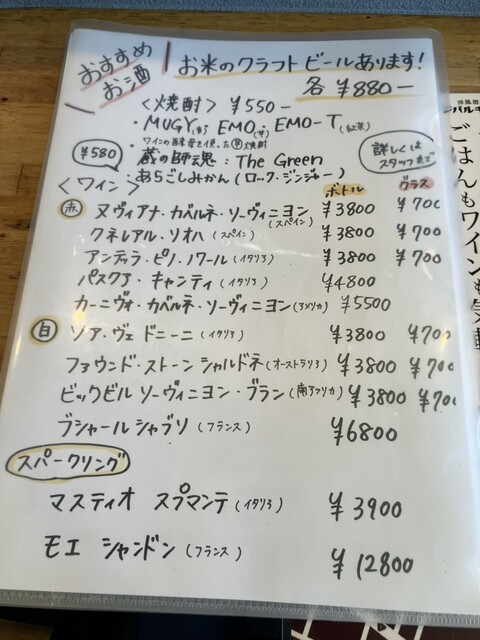 おすすめ
お酒
お米のクラフトビールあります!
各 ¥880-
〈焼酎〉 ¥550-
・MUGY(麦) EMO(芋)・EMO-T(紅茶)
ワインの酵母を使った 焼酎
・蔵の師魂:The Green
詳しくは
スタッフまで
¥580
・あらごしみかん(ロック・ジンジャー)
〈ワイン〉
ボトル グラス
赤 ヌヴィアナ・カベルネ・ソーヴィニヨン(スペイン) ¥3800 ¥700
クネレアル・ソオハ(スペイン) ¥3800 ¥700
アンティラ・ピノ・ノワール(イタリア) ¥3800 ¥700
パスクア・キャンティ(イタリア) ¥4800
カーニヴォ・カベルネ・ソーヴィニヨン(アメリカ) ¥5500
白 ソア・ヴェドニーニ(イタリア) ¥3800 ¥700
ファウンド・ストーンシャルドネ(オーストラリア) ¥3800 ¥700
ビックビルソーヴィニヨン・ブラン(南アフリカ) ¥3800 ¥700
ブシャールシャブリ(フランス) ¥6800
スパークリング
マスティオ スプマンテ(イタリア) ¥3900
モエ シャンドン(フランス) ¥12800
ごはんもワインも